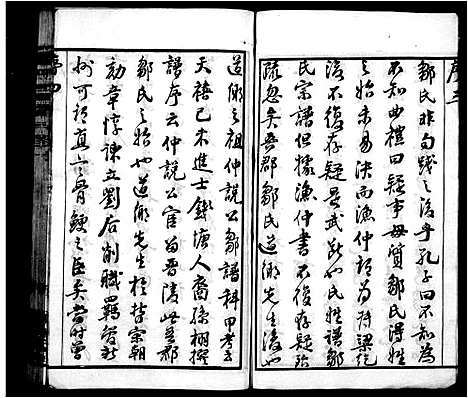 序三
鄒氏非句踐之後乎孔子曰不知為
不知曲禮曰疑事毋質鄒氏得姓
之始未易決而漁仲謂為
後不復存疑是武斷也氏姓譜鄒
氏宗譜但據漁仲書不復存疑殆
疏忽矣吾郡鄒氏道鄉先生後也
道鄉之祖仲說公鄒譜科甲考云
天禧己未進士錢塘人裔孫栩撰
譜序云仲說公宦為晉陵此吾郡
鄒氏之始也道鄉先生於哲宗朝
劾章惇諫立劉后削職羈管新
州可謂真正骨鯁之臣矣當時
序四